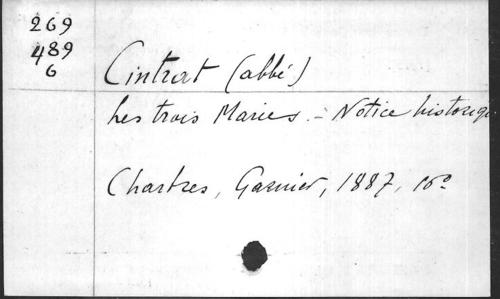 269
489
6
Cintrat (abbé)
Les trois Maries. - Notice historiq
Chartres, Garnier, 1887, 16°